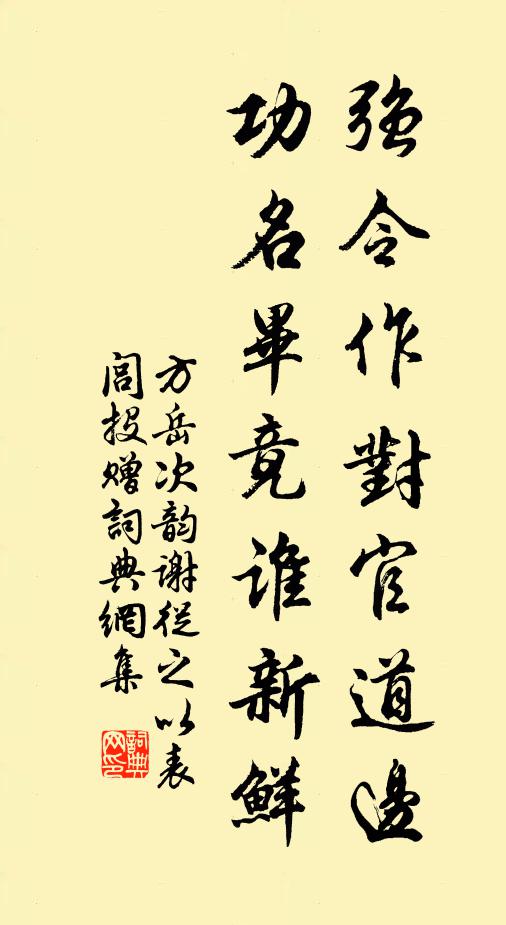 強令作對官道邊
功名畢竟誰新鮮
方岳次韵謝從之以表
閭投贈詞典網集
詞典網印